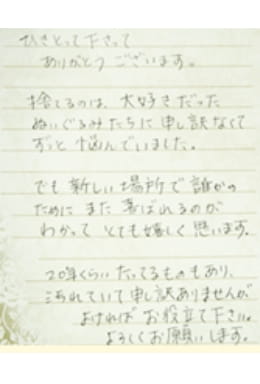 ひきとって下さって
ありがとうございます。
捨てるのは、大好きだった
ぬいぐるみたちに申し訳なくて
ずっと悩んでいました。
でも新しい場所で誰かの
ためにまた喜ばれるのが
わかってとても嬉しく思います。
20年くらいたってるものもあり、
汚れていて申し訳ありませんが
よければお役立て下さい。
よろしくお願いします。